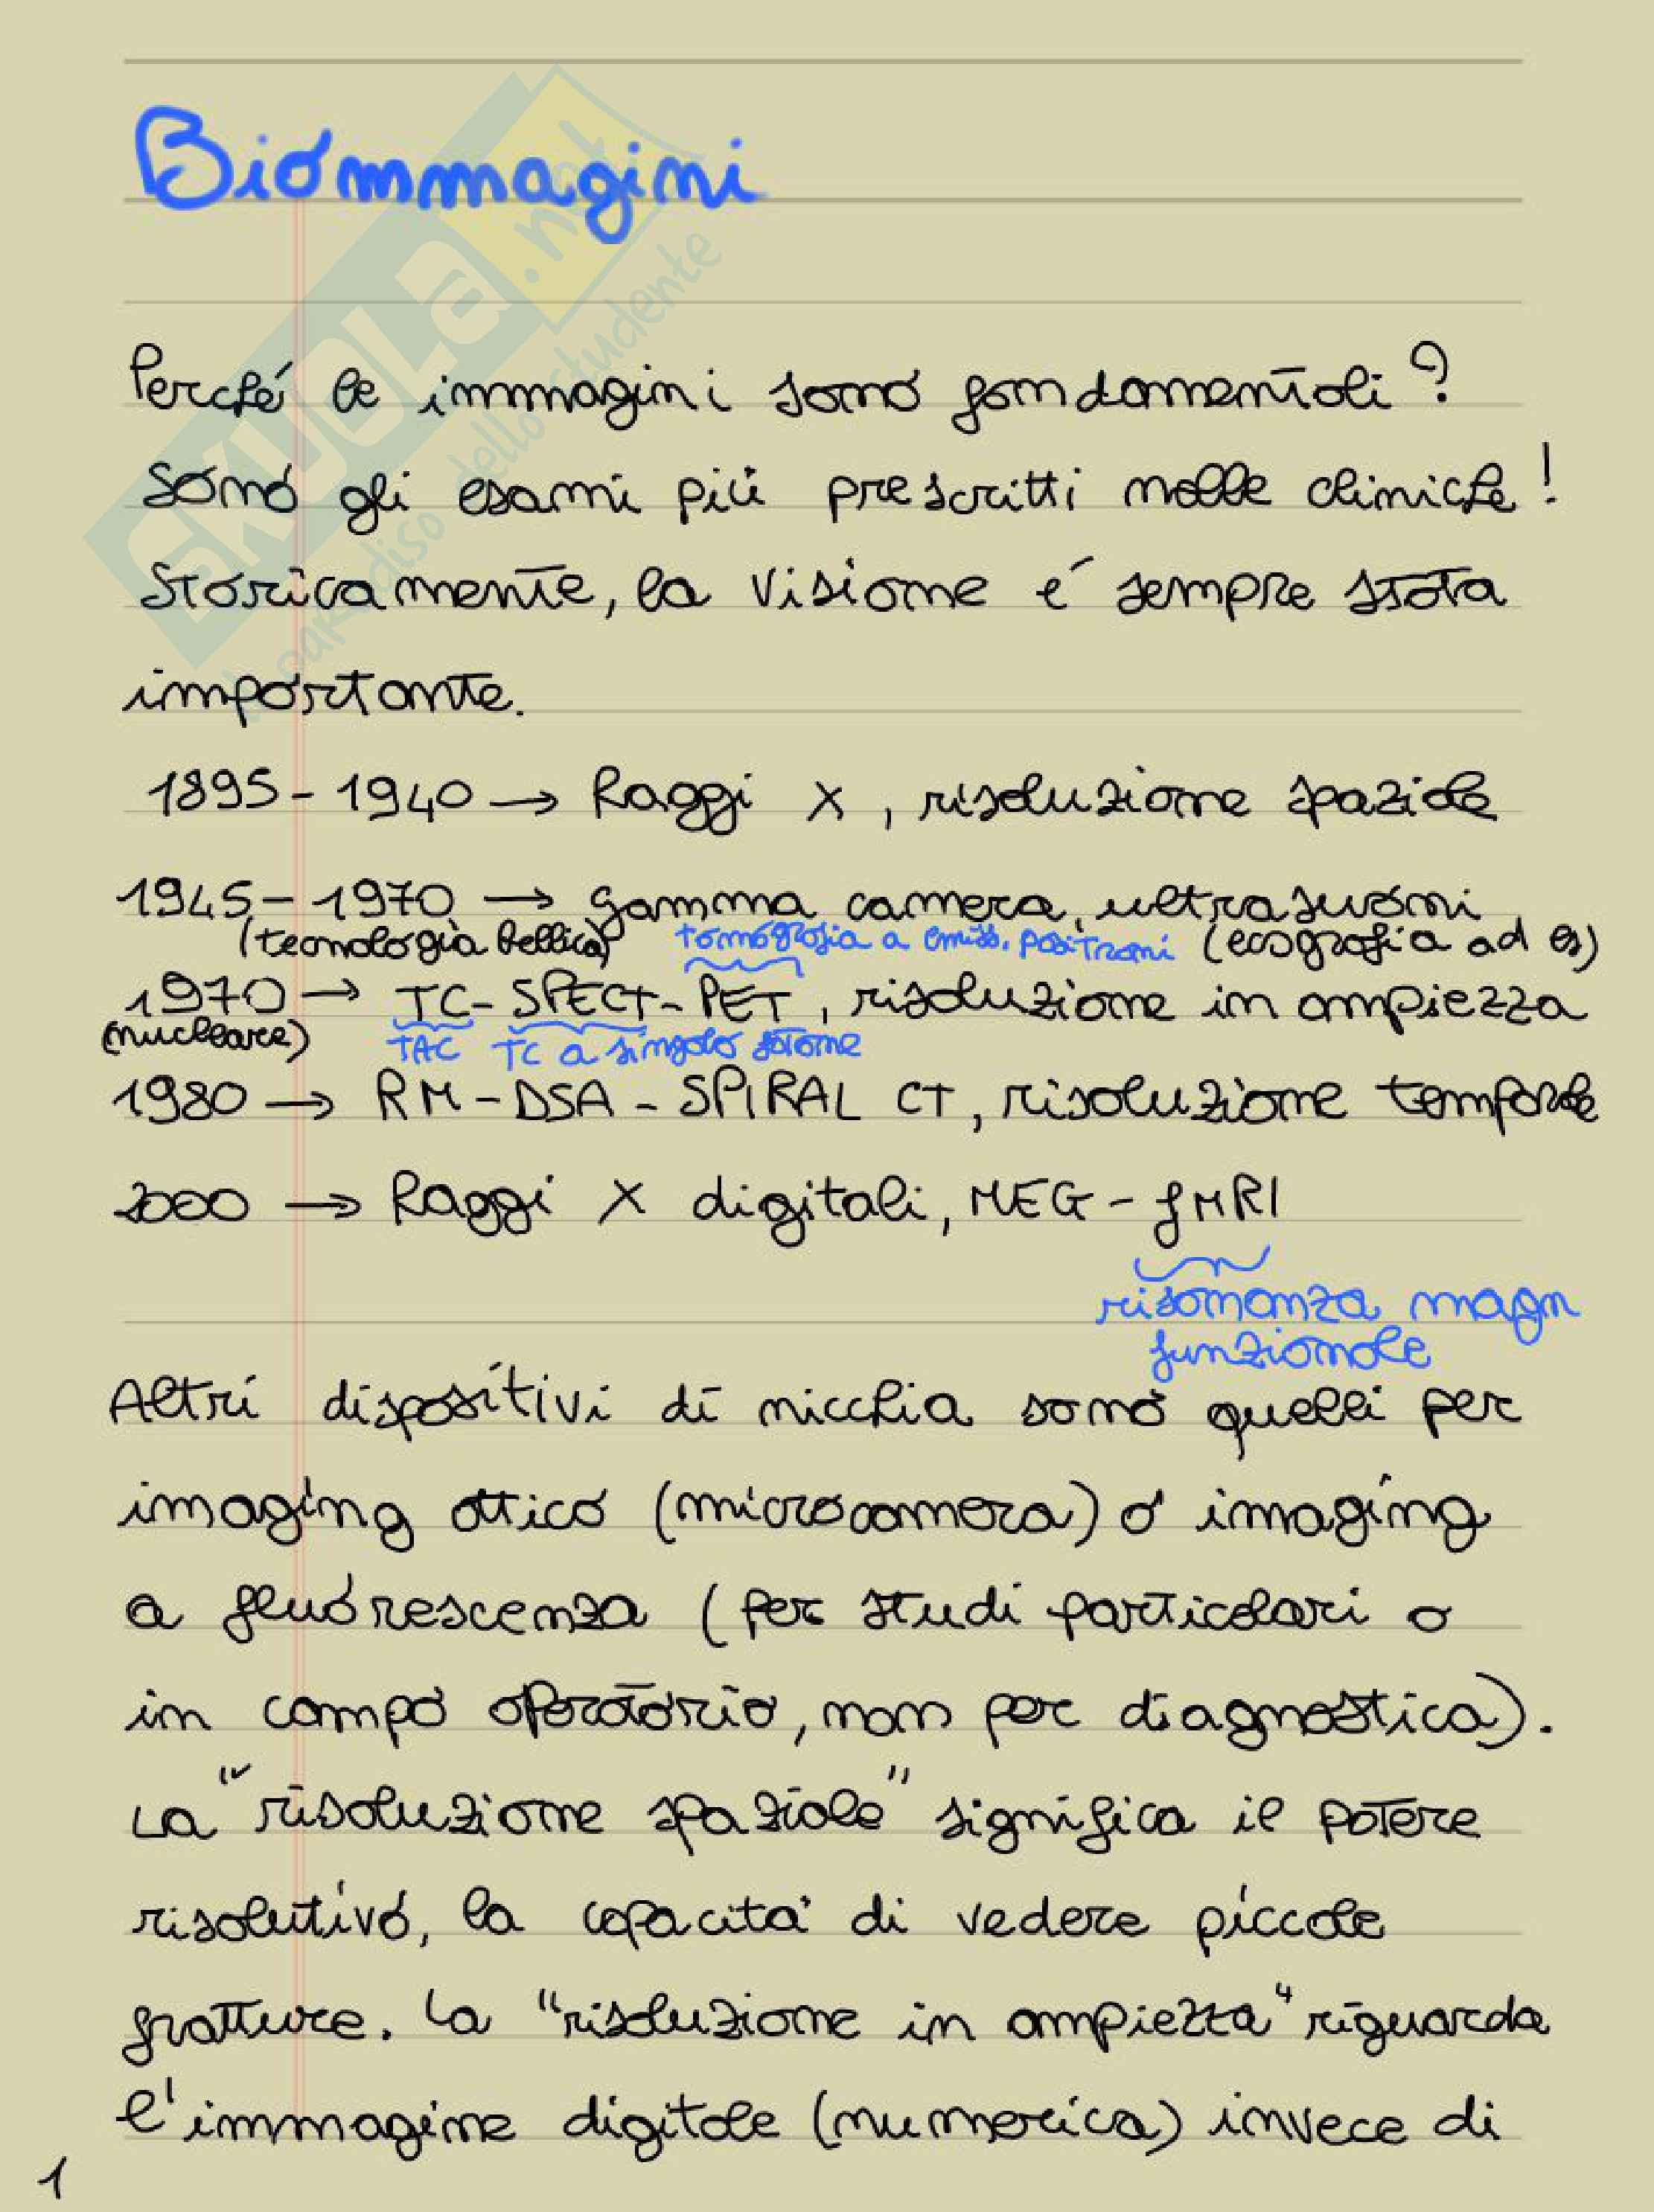 Bioimmagini
SKUOLA.net
il paradiso dello studente
Perché le immagini sono fondamentali?
Sono gli esami più prescritti nelle cliniche!
Storicamente, la visione é sempre stata
importante.
1895-1940 → Raggi X, risoluzione spaziale
1945-1970 → gamma camera, ultrasuoni
(tecnologia bellica) tomografia a emiss. positroni (ecografia ad es)
1970 → TC-SPECT-PET, risoluzione in ampiezza
(nucleare) TAC TC a singolo fotone
1980 → RM-DSA-SPIRAL CT, risoluzione temporale
2000 → Raggi X digitali, MEG-fMRI
risonanza magn
funzionale
Altri dispositivi di nicchia sono quelli per
imaging ottico (microcamera) o imaging
a fluorescenza (per studi particolari o
in campo operatorio, non per diagnostica).
La "risoluzione spaziale" significa il potere
risolutivo, la capacità di vedere piccole
fratture. La "risoluzione in ampiezza" riguarda
l'immagine digitale (numerica) invece di
1